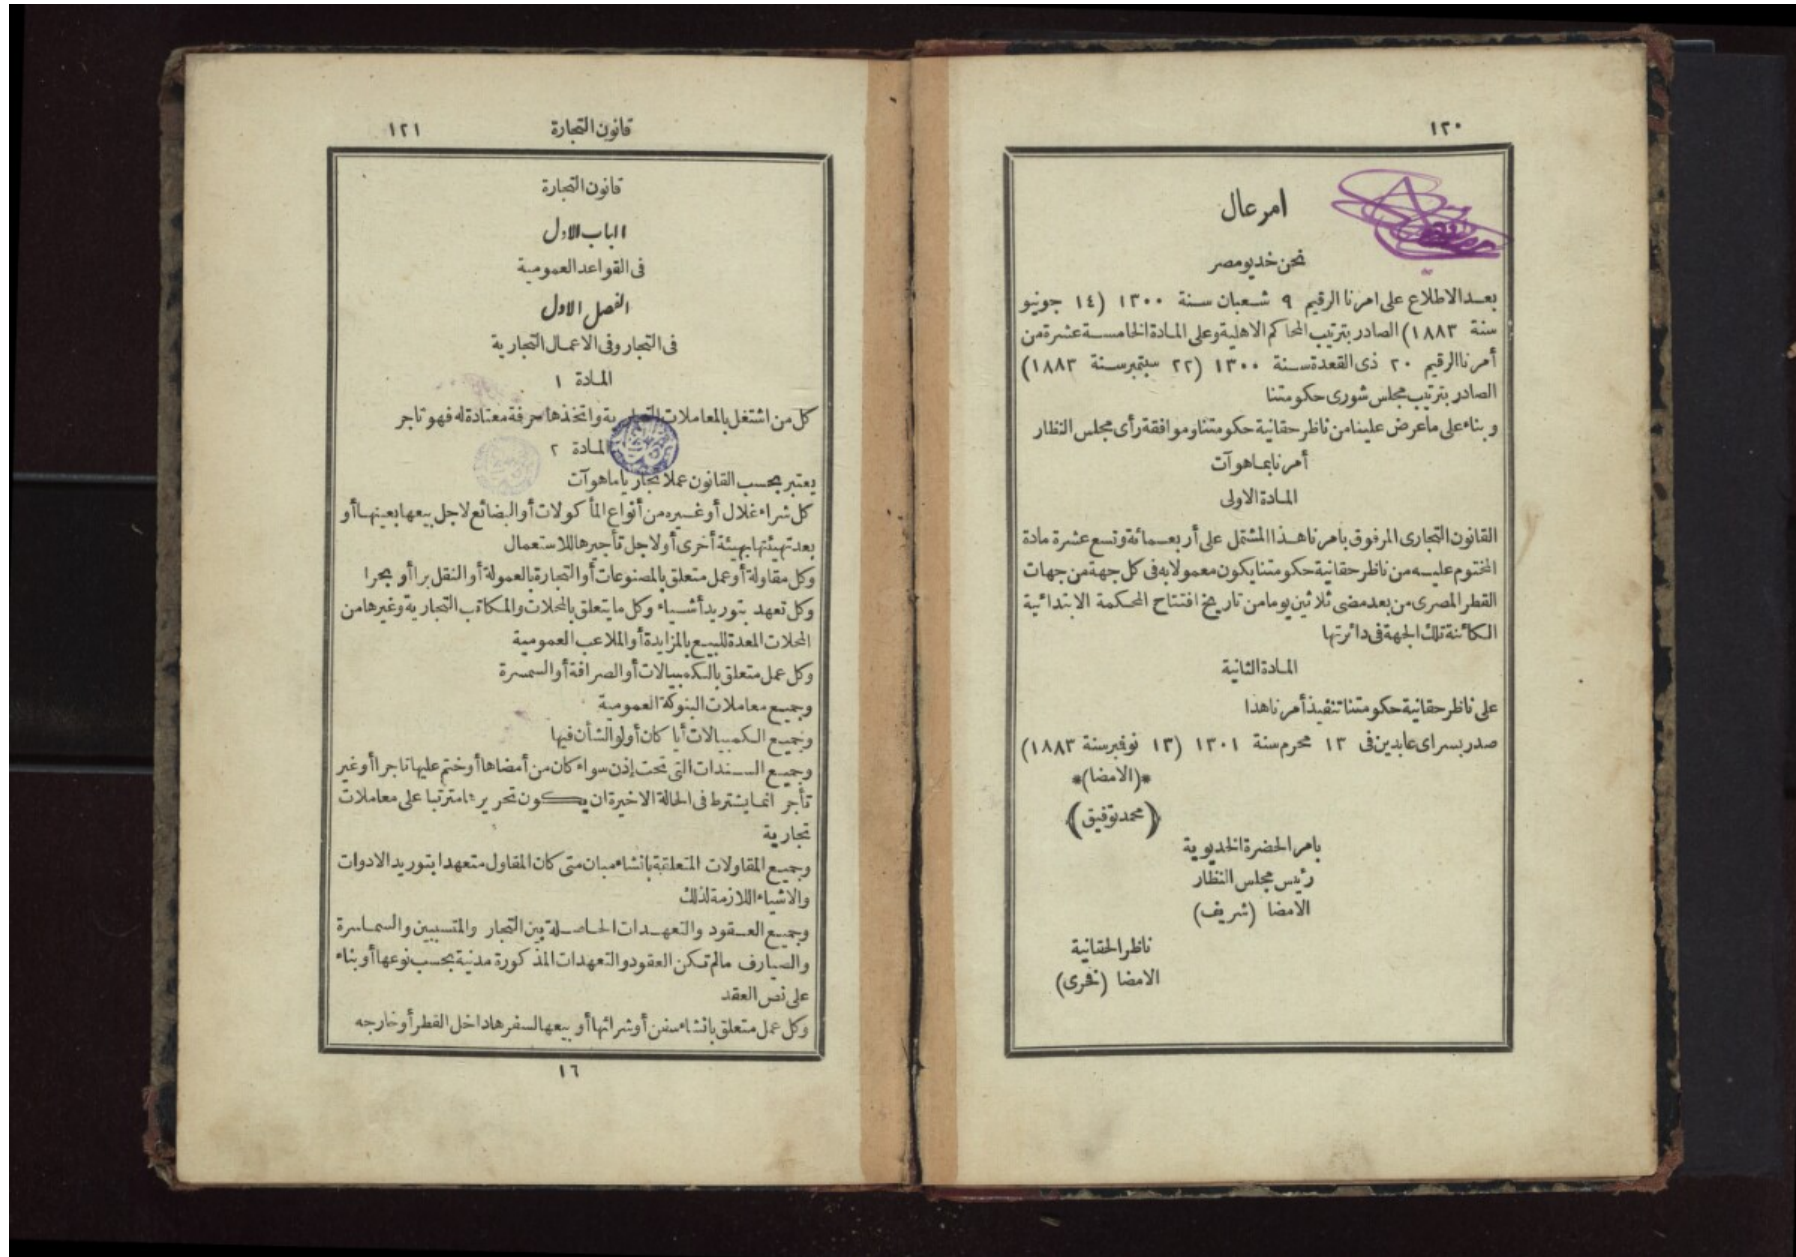 ١٢٠
امر عال
نحن خديو مصر
بعد الاطلاع على امرنا الرقيم ٩ شعبان سنة ١٣٠٠ (١٤ جونيو
سنة ١٨٨٣) الصادر بترتيب المحاكم الاهلية وعلى المادة الخامسة عشرة من
أمرنا الرقيم ٢٠ ذى القعدة سنة ١٣٠٠ (٢٢ سبتمبر سنة ١٨٨٣)
الصادر بترتيب مجلس شورى حكومتنا
وبناء على ما عرض علينا من ناظر حقانية حكومتنا وموافقة رأى مجلس النظار
أمرنا بما هو آت
المادة الاولى
القانون التجارى المرفوق بامرنا هذا المشتمل على أربعمائة وتسع عشرة مادة
المختوم عليه من ناظر حقانية حكومتنا يكون معمولا به فى كل جهة من جهات
القطر المصرى من بعد مضى ثلاثين يوما من تاريخ افتتاح المحكمة الابتدائية
الكائنة تلك الجهة فى دائرتها
المادة الثانية
على ناظر حقانية حكومتنا تنفيذ أمرنا هذا
صدر بسراى عابدين فى ١٣ محرم سنة ١٣٠١ (١٣ نوفمبر سنة ١٨٨٣)
*(الامضا)*
(محمد توفيق)
بامر الحضرة الخديوية
رئيس مجلس النظار
الامضا (شريف)
ناظر الحقانية
الامضا (فخرى)
قانون التجارة ١٢١
قانون التجارة
الباب الاول
فى القواعد العمومية
الفصل الاول
فى التجار وفى الاعمال التجارية
المادة ١
كل من اشتغل بالمعاملات التجارية واتخذها حرفة معتادة له فهو تاجر
المادة ٢
يعتبر بحسب القانون عملا تجاريا ما هو آت
كل شراء غلال أو غيره من أنواع المأكولات أو البضائع لاجل بيعها بعينها أو
بعد تهيئتها بهيئة أخرى أو لاجل تأجيرها للاستعمال
وكل مقاولة أو عمل متعلق بالمصنوعات أو التجارة بالعمولة أو النقل برا أو بحرا
وكل تعهد بتوريد أشياء وكل ما يتعلق بالمحلات والمكاتب التجارية وغيرها من
المحلات المعدة للبيع بالمزايدة أو الملاعب العمومية
وكل عمل متعلق بالكمبيالات أو الصرافة أو السمسرة
وجميع معاملات البنوكة العمومية
وجميع الكمبيالات أيا كان أولو الشأن فيها
وجميع السندات التى تحت إذن سواء كان من أمضاها أو ختم عليها تاجرا أو غير
تأجر انما يشترط فى الحالة الاخيرة ان يكون تحريرها مترتبا على معاملات
تجارية
وجميع المقاولات المتعلقة بانشاء مبان متى كان المقاول متعهدا بتوريد الادوات
والاشياء اللازمة لذلك
وجميع العقود والتعهدات الحاصلة بين التجار والمتسببين والسماسرة
والصيارف مالم تكن العقود والتعهدات المذكورة مدنية بحسب نوعها أو بناء
على نص العقد
وكل عمل متعلق بانشاء سفن أو شرائها أو بيعها لسفرها داخل القطر أو خارجه
١٦